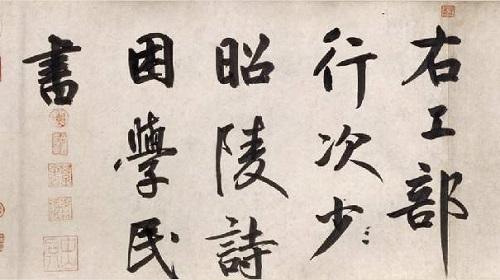 右工部
行次少
昭陵詩
困學民
書